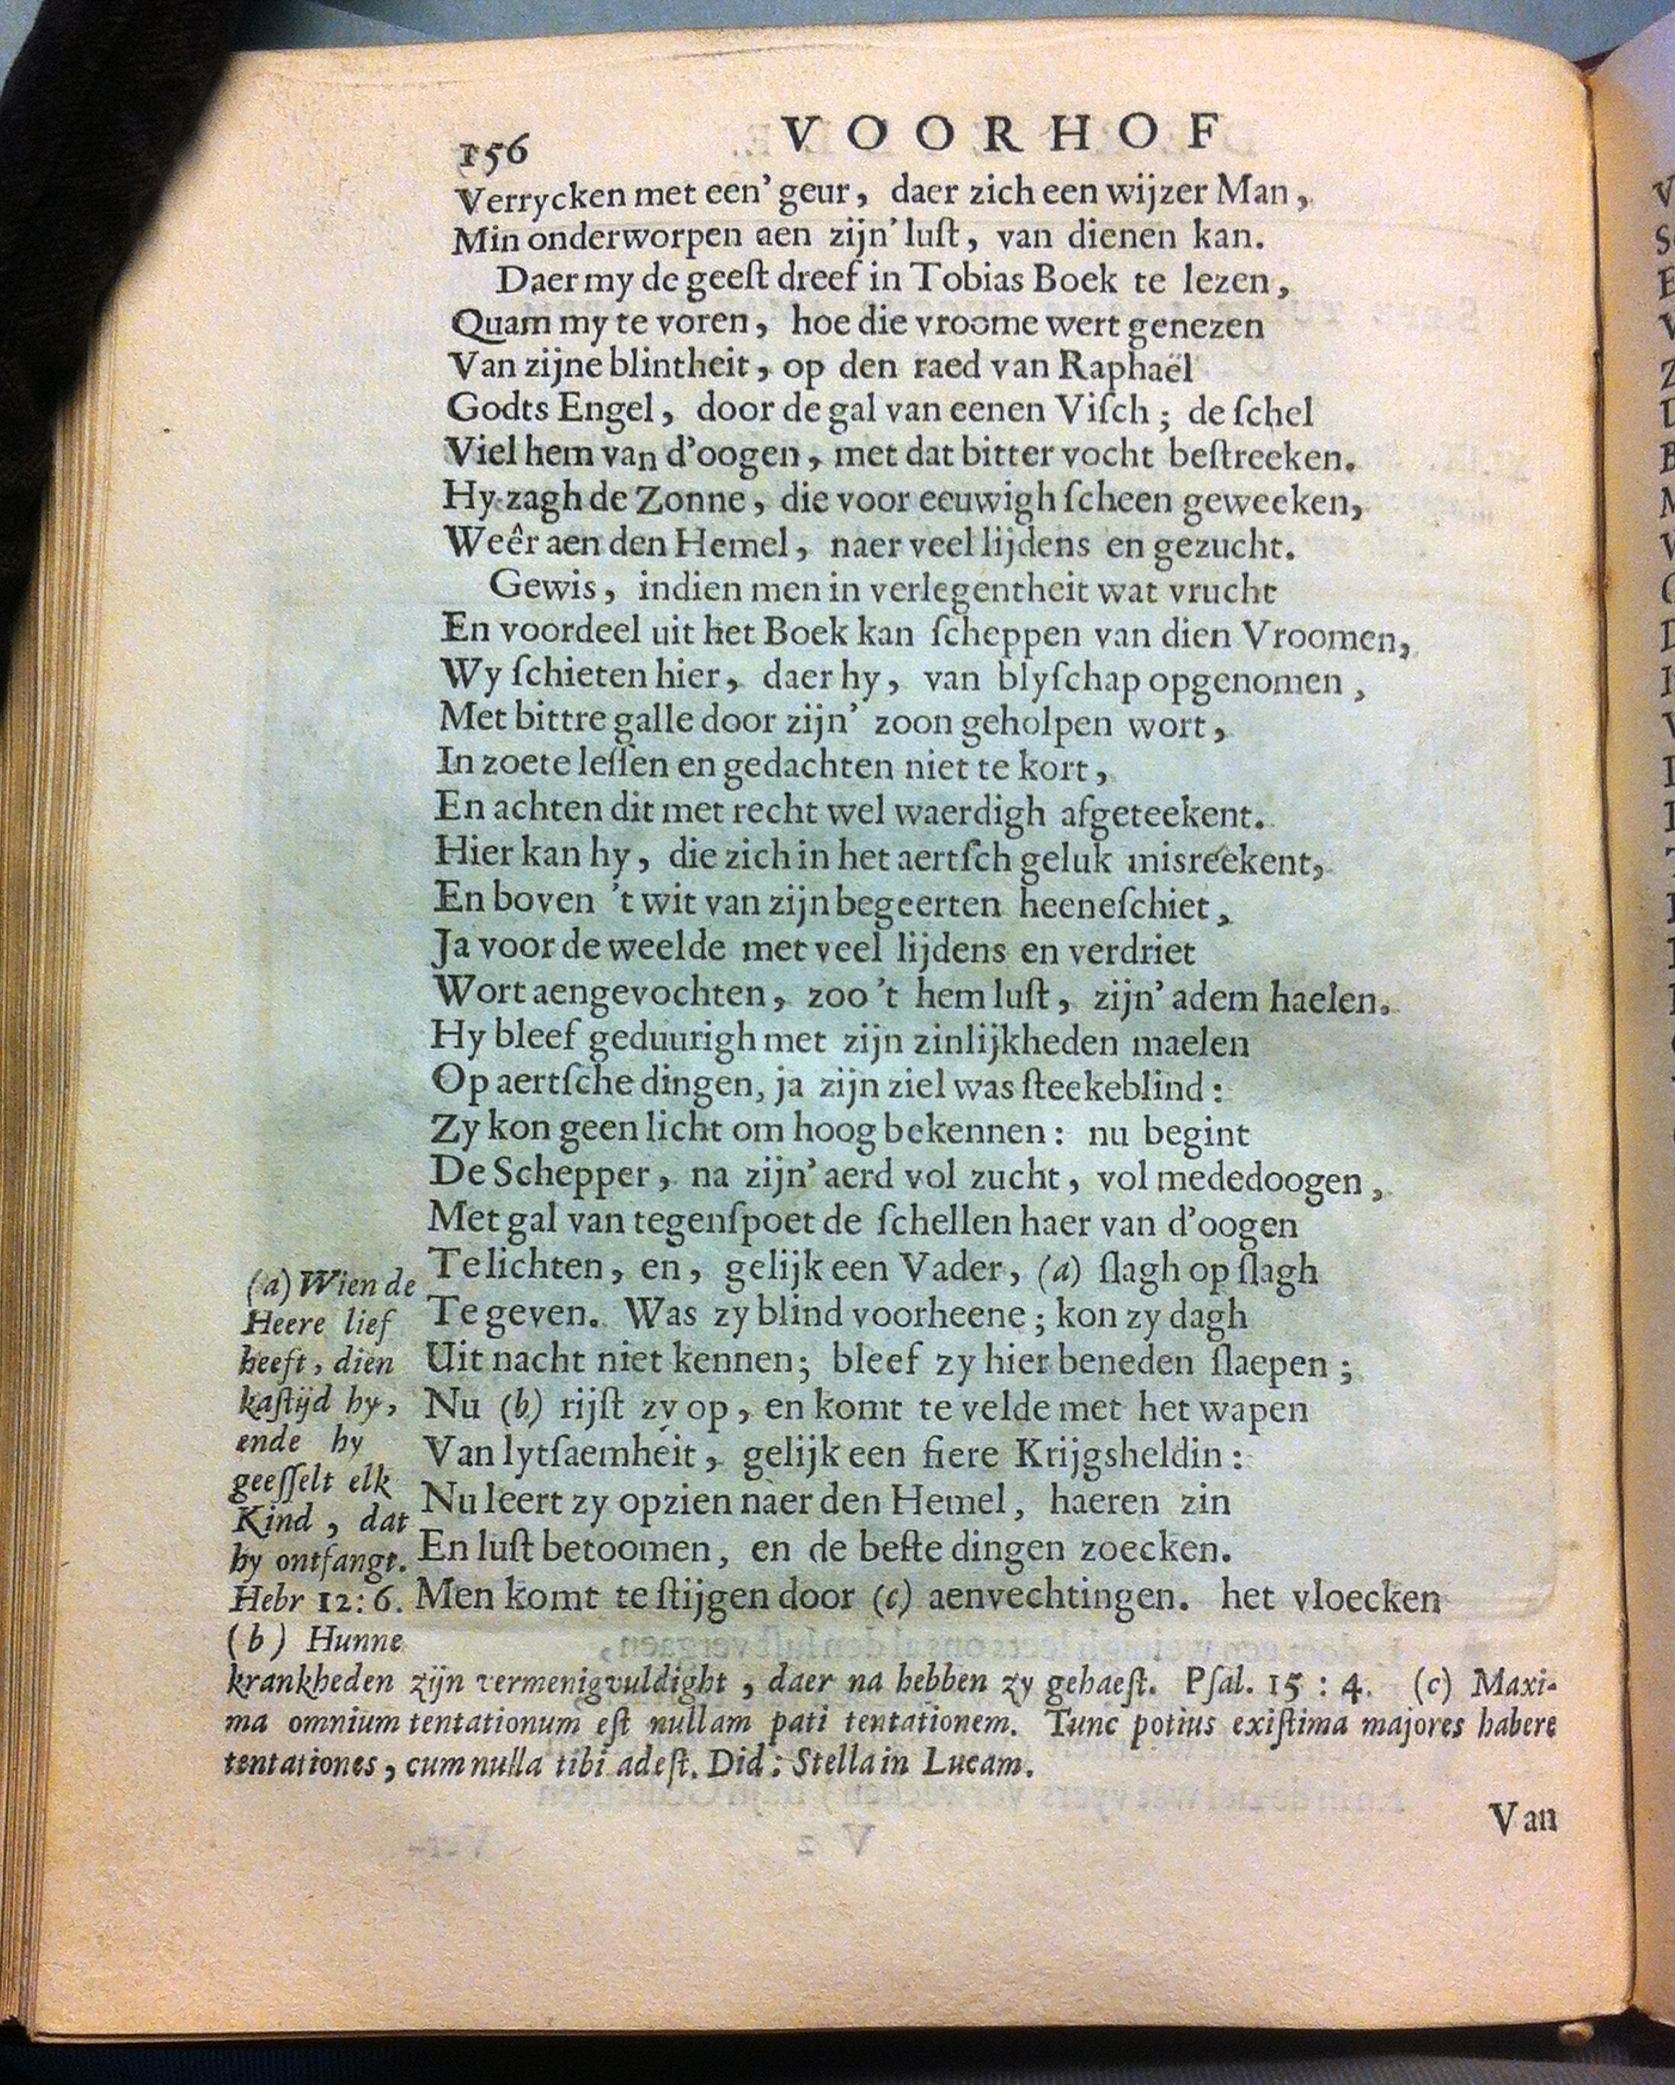 156 VOORHOF
Verrycken met een' geur, daer zich een wijzer Man,
Min onderworpen aen zijn' luſt, van dienen kan.
Daer my de geeſt dreef in Tobias Boek te lezen,
Quam my te voren, hoe die vroome wert genezen
Van zijne blintheit, op den raed van Raphaël
Godts Engel, door de gal van eenen Viſch; de ſchel
Viel hem van d'oogen, met dat bitter vocht beſtreeken.
Hy zagh de Zonne, die voor eeuwigh ſcheen geweeken,
Weêr aen den Hemel, naer veel lijdens en gezucht.
Gewis, indien men in verlegentheit wat vrucht
En voordeel uit het Boek kan ſcheppen van dien Vroomen,
Wy ſchieten hier, daer hy, van blyſchap opgenomen,
Met bittre galle door zijn' zoon geholpen wort,
In zoete leſſen en gedachten niet te kort,
En achten dit met recht wel waerdigh afgeteekent.
Hier kan hy, die zich in het aertſch geluk misreekent,
En boven 't wit van zijn begeerten heeneſchiet,
Ja voor de weelde met veel lijdens en verdriet
Wort aengevochten, zoo 't hem luſt, zijn' adem haelen.
Hy bleef geduurigh met zijn zinlijkheden maelen
Op aertſche dingen, ja zijn ziel was ſteekeblind:
Zy kon geen licht om hoog bekennen: nu begint
De Schepper, na zijn' aerd vol zucht, vol mededoogen,
Met gal van tegenſpoet de ſchellen haer van d'oogen
Te lichten, en, gelijk een Vader, (a) ſlagh op ſlagh
Te geven. Was zy blind voorheene; kon zy dagh
Uit nacht niet kennen; bleef zy hier beneden ſlaepen;
Nu (b) rijſt zy op, en komt te velde met het wapen
Van lytſaemheit, gelijk een fiere Krijgsheldin:
Nu leert zy opzien naer den Hemel, haeren zin
En luſt betoomen, en de beſte dingen zoecken.
Men komt te ſtijgen door (c) aenvechtingen. het vloecken
(a) Wien de
Heere lief
heeft, dien
kaſtijd hy,
ende hy
geeſſelt elk
Kind, dat
hy ontfangt.
Hebr 12:6.
(b) Hunne
krankheden zijn vermenigvuldight, daer na hebben zy gehaeſt. Pſal. 15 : 4. (c) Maxi-
ma omnium tentationum eſt nullam pati tentationem. Tunc potius exiſtima majores habere
tentationes, cum nulla tibi adeſt. Did: Stella in Lucam.
Van